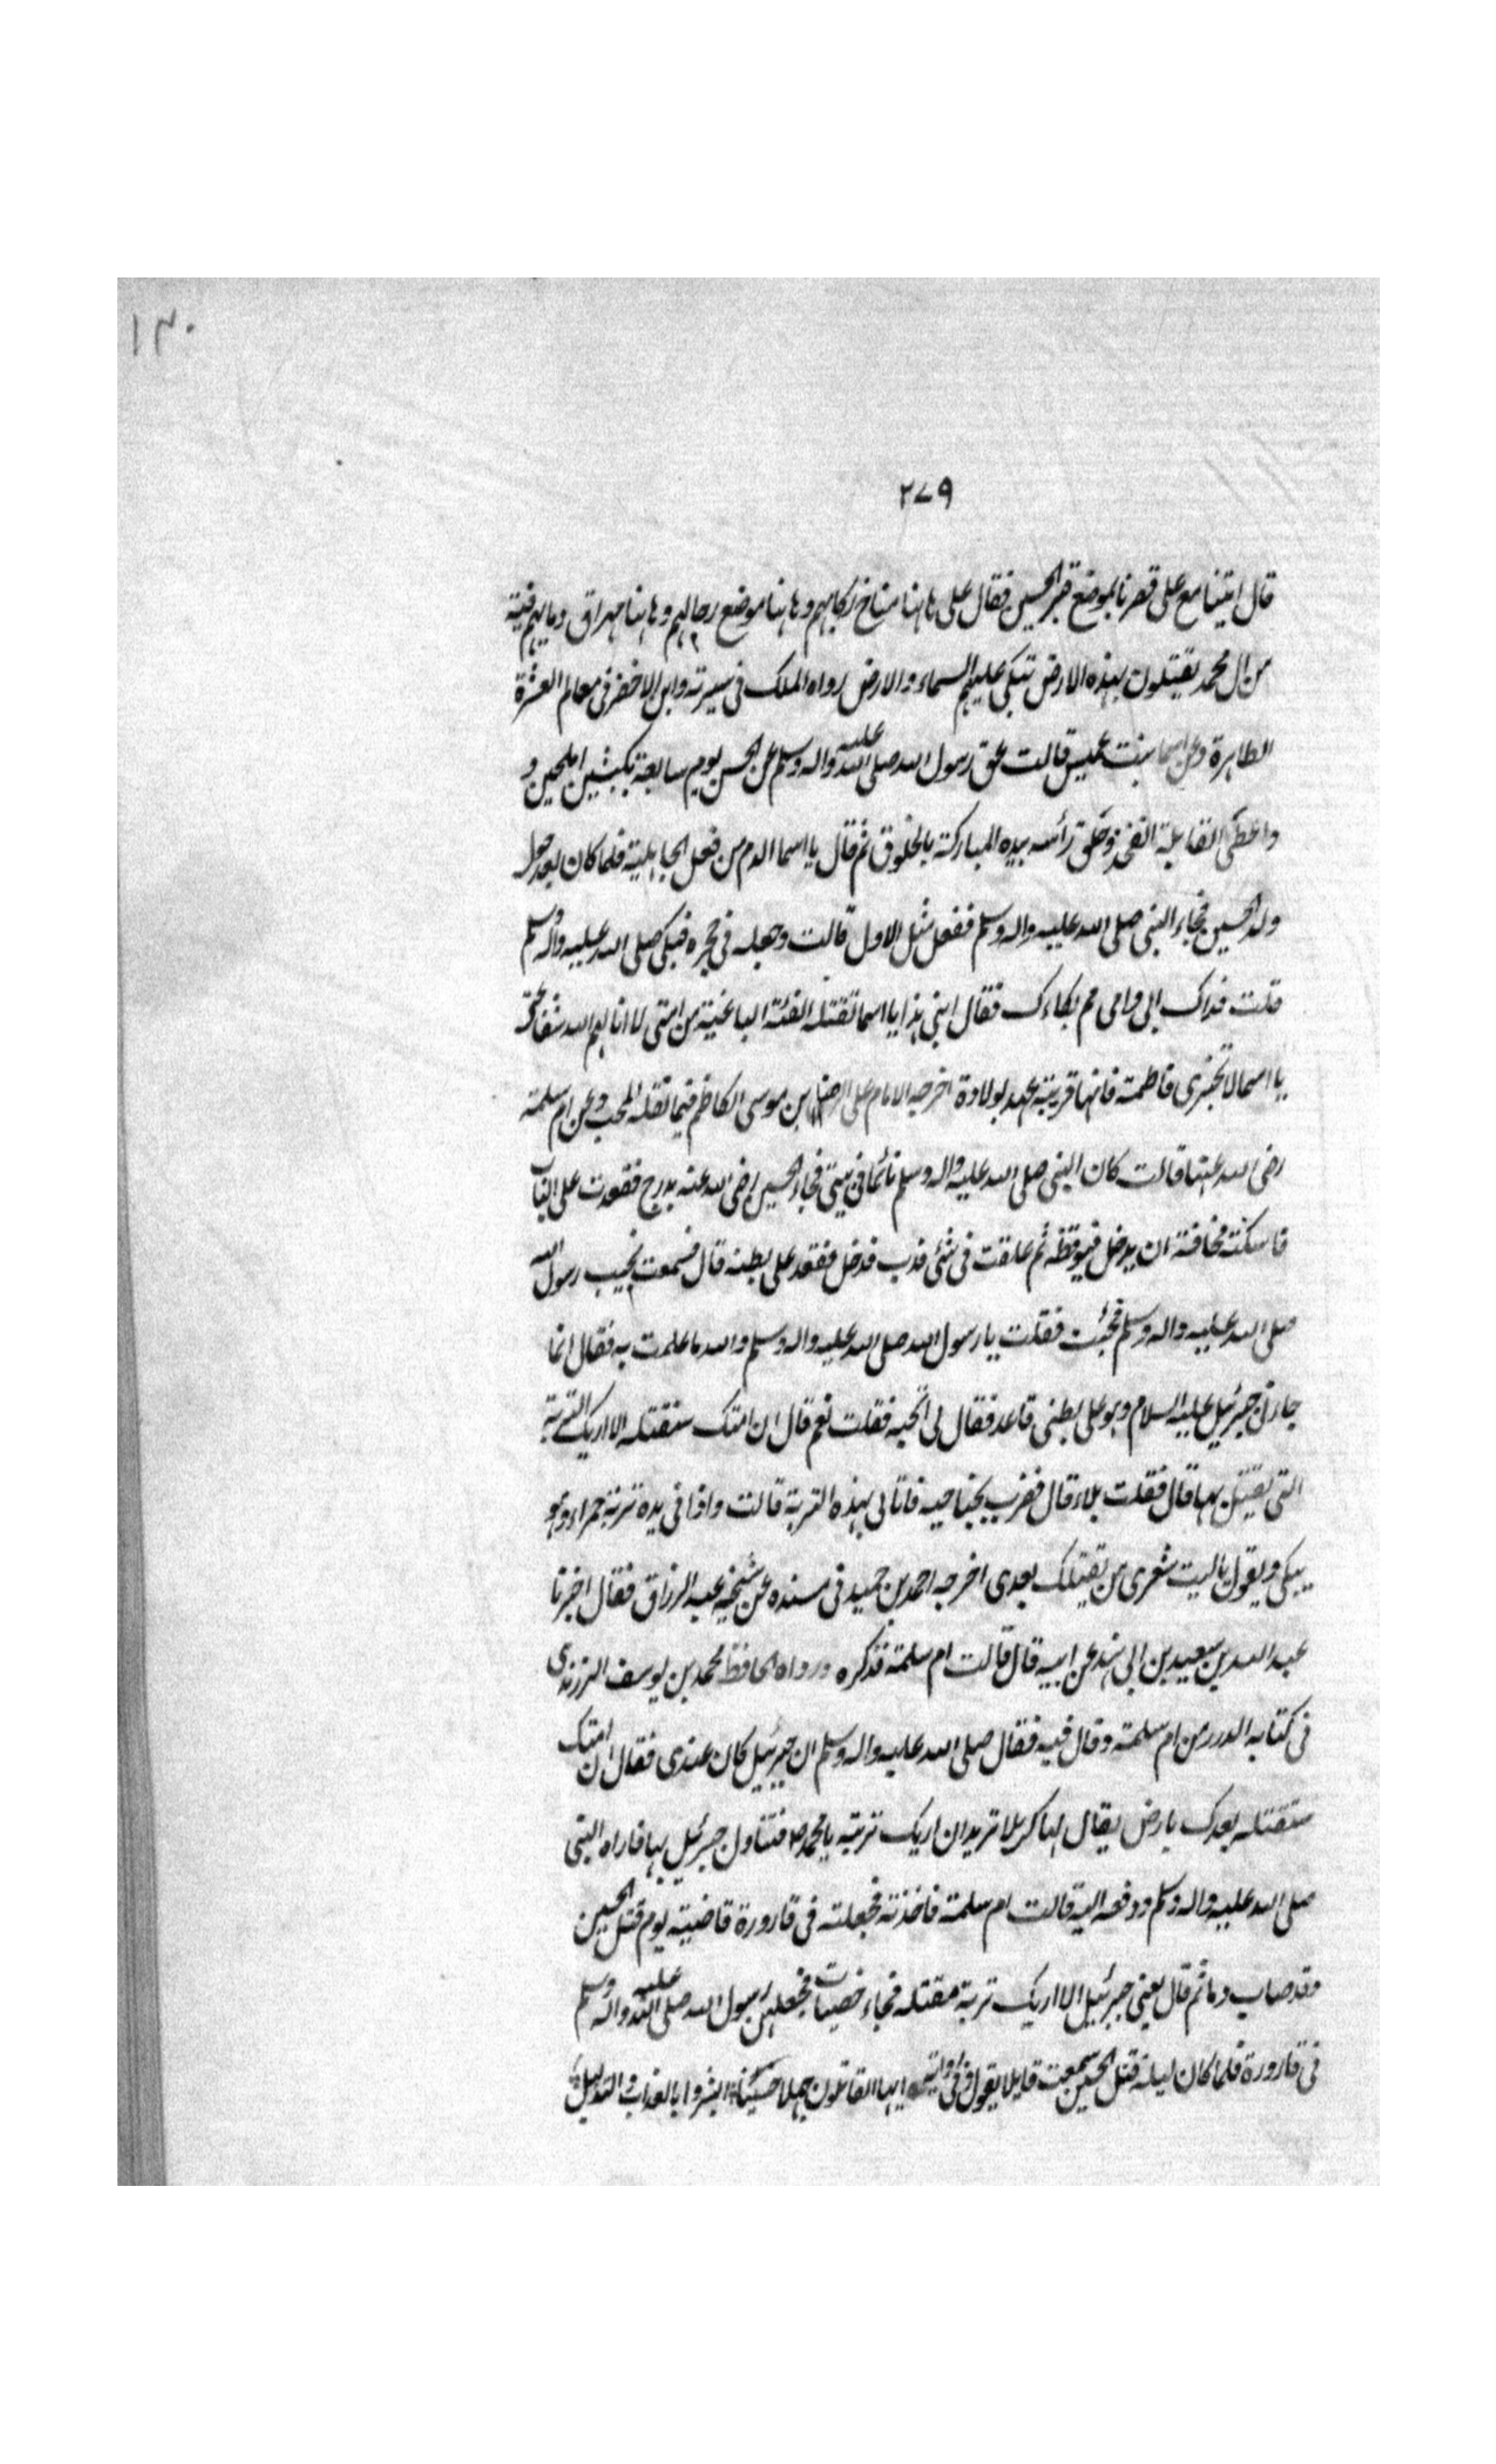 ١٣٠
٢٧٩
قال اتينا مع على فمرنا بموضع قبر الحسين فقال على هاهنا مناخ ركابهم وهاهنا موضع رحالهم وهاهنا مهراق دمايهم فتية
من ال محمد يقتلون بهذه الارض تبكى عليهم السماء والارض رواه الملا فى سيرته وابن الاخضر فى معالم العشرة
الطاهرة وعن اسما بنت عميس قالت عق رسول الله صلى الله عليه واله وسلم عن الحسن يوم سابعة بكبشين املحين و
واعطى القابلة الفخذ وحلق رأسه بيده المباركة بالخلوق ثم قال يا اسما الدم من فعل الجاهلية فلما كان بعد حول
ولد الحسين فجاء النبى صلى الله عليه واله وسلم ففعل مثل الاول قالت وجعله فى حجره فبكى صلى الله عليه واله وسلم
قلت فداك ابى وامى مم بكاءك فقال ابنى هذا يا اسما تقتله الفئة الباغية من امتى لا انالهم الله شفاعتى
يا اسما لا تخبرى فاطمة فانها قريبة عهد بولادة اخرجه الامام على الرضا بن موسى الكاظم فيما نقله المحب وعن ام سلمة
رضى الله عنها قالت كان النبى صلى الله عليه واله وسلم نائما فى بيتى فجاء الحسين رضى الله عنه يدرج فقعدت على الباب
فاسكته مخافة ان يدخل فيوقظه ثم علقت فى شئى فدب فدخل فقعد على بطنه قال فسمعت نحيب رسول الله
صلى الله عليه واله وسلم فجئت فقلت يا رسول الله صلى الله عليه واله وسلم والله ما علمت به فقال انما
جاءنى جبرئيل عليه السلام وهو على بطنى قاعد فقال لى اتحبه فقلت نعم قال ان امتك ستقتله الا اريك التربة
التى يقتل بها قال فقلت بلاء قال فضرب بجناحيه فاتانى بهذه التربة قالت واذا فى يده تربة حمراء وهو
يبكى ويقول ياليت شعرى من يقتلك بعدى اخرجه احمد بن حميد فى مسنده عن شيخه عبد الرزاق فقال اخبرنا
عبد الله بن سعيد بن ابى هند عن ابيه قال قالت ام سلمة فذكره ورواه الحافظ محمد بن يوسف الزرندى
فى كتابه الدرر من ام سلمة وقال فيه فقال صلى الله عليه واله وسلم ان جبرئيل كان عندى فقال ان امتك
ستقتله بعدك بارض يقال لها كربلا تريد ان اريك تربته يا محمد ص فتناول جبرئيل بها فاراه النبى
صلى الله عليه واله وسلم ودفعه اليه قالت ام سلمة فاخذته فجعلته فى قارورة فاضيته يوم قتل الحسين
وقد صاب دما ثم قال يعنى جبرئيل الا اريك تربة مقتله فجاء خصيات فجعلهن رسول الله صلى الله عليه واله وسلم
فى قارورة فلما كان ليلة قتل الحسين سمعت قايلا يقول ايها القاتلون جهلا حسينا ابشروا بالعذاب والتذليل